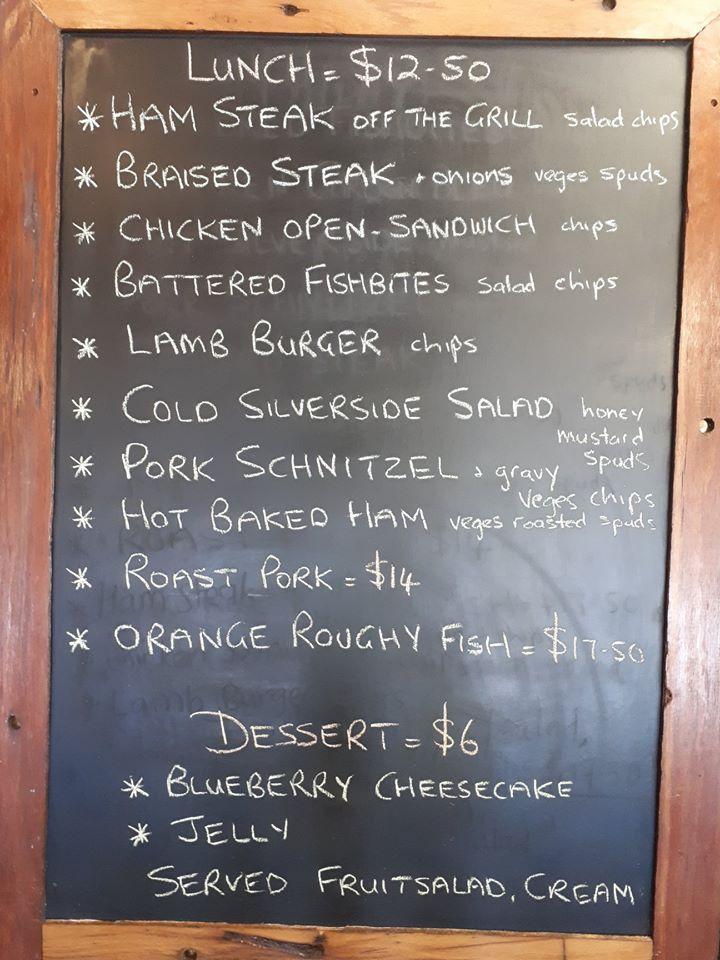 LUNCH = $12-50
* HAM STEAK OFF THE GRILL salad chips
* BRAISED STEAK + onions veges spuds
* CHICKEN OPEN-SANDWICH chips
* BATTERED FISHBITES salad chips
* LAMB BURGER chips
* COLD SILVERSIDE SALAD honey
mustard
spuds
* PORK SCHNITZEL + gravy
veges chips
* HOT BAKED HAM veges roasted spuds
* ROAST PORK = $14
* ORANGE ROUGHY FISH = $17-50
DESSERT = $6
* BLUEBERRY CHEESECAKE
* JELLY
SERVED FRUITSALAD, CREAM